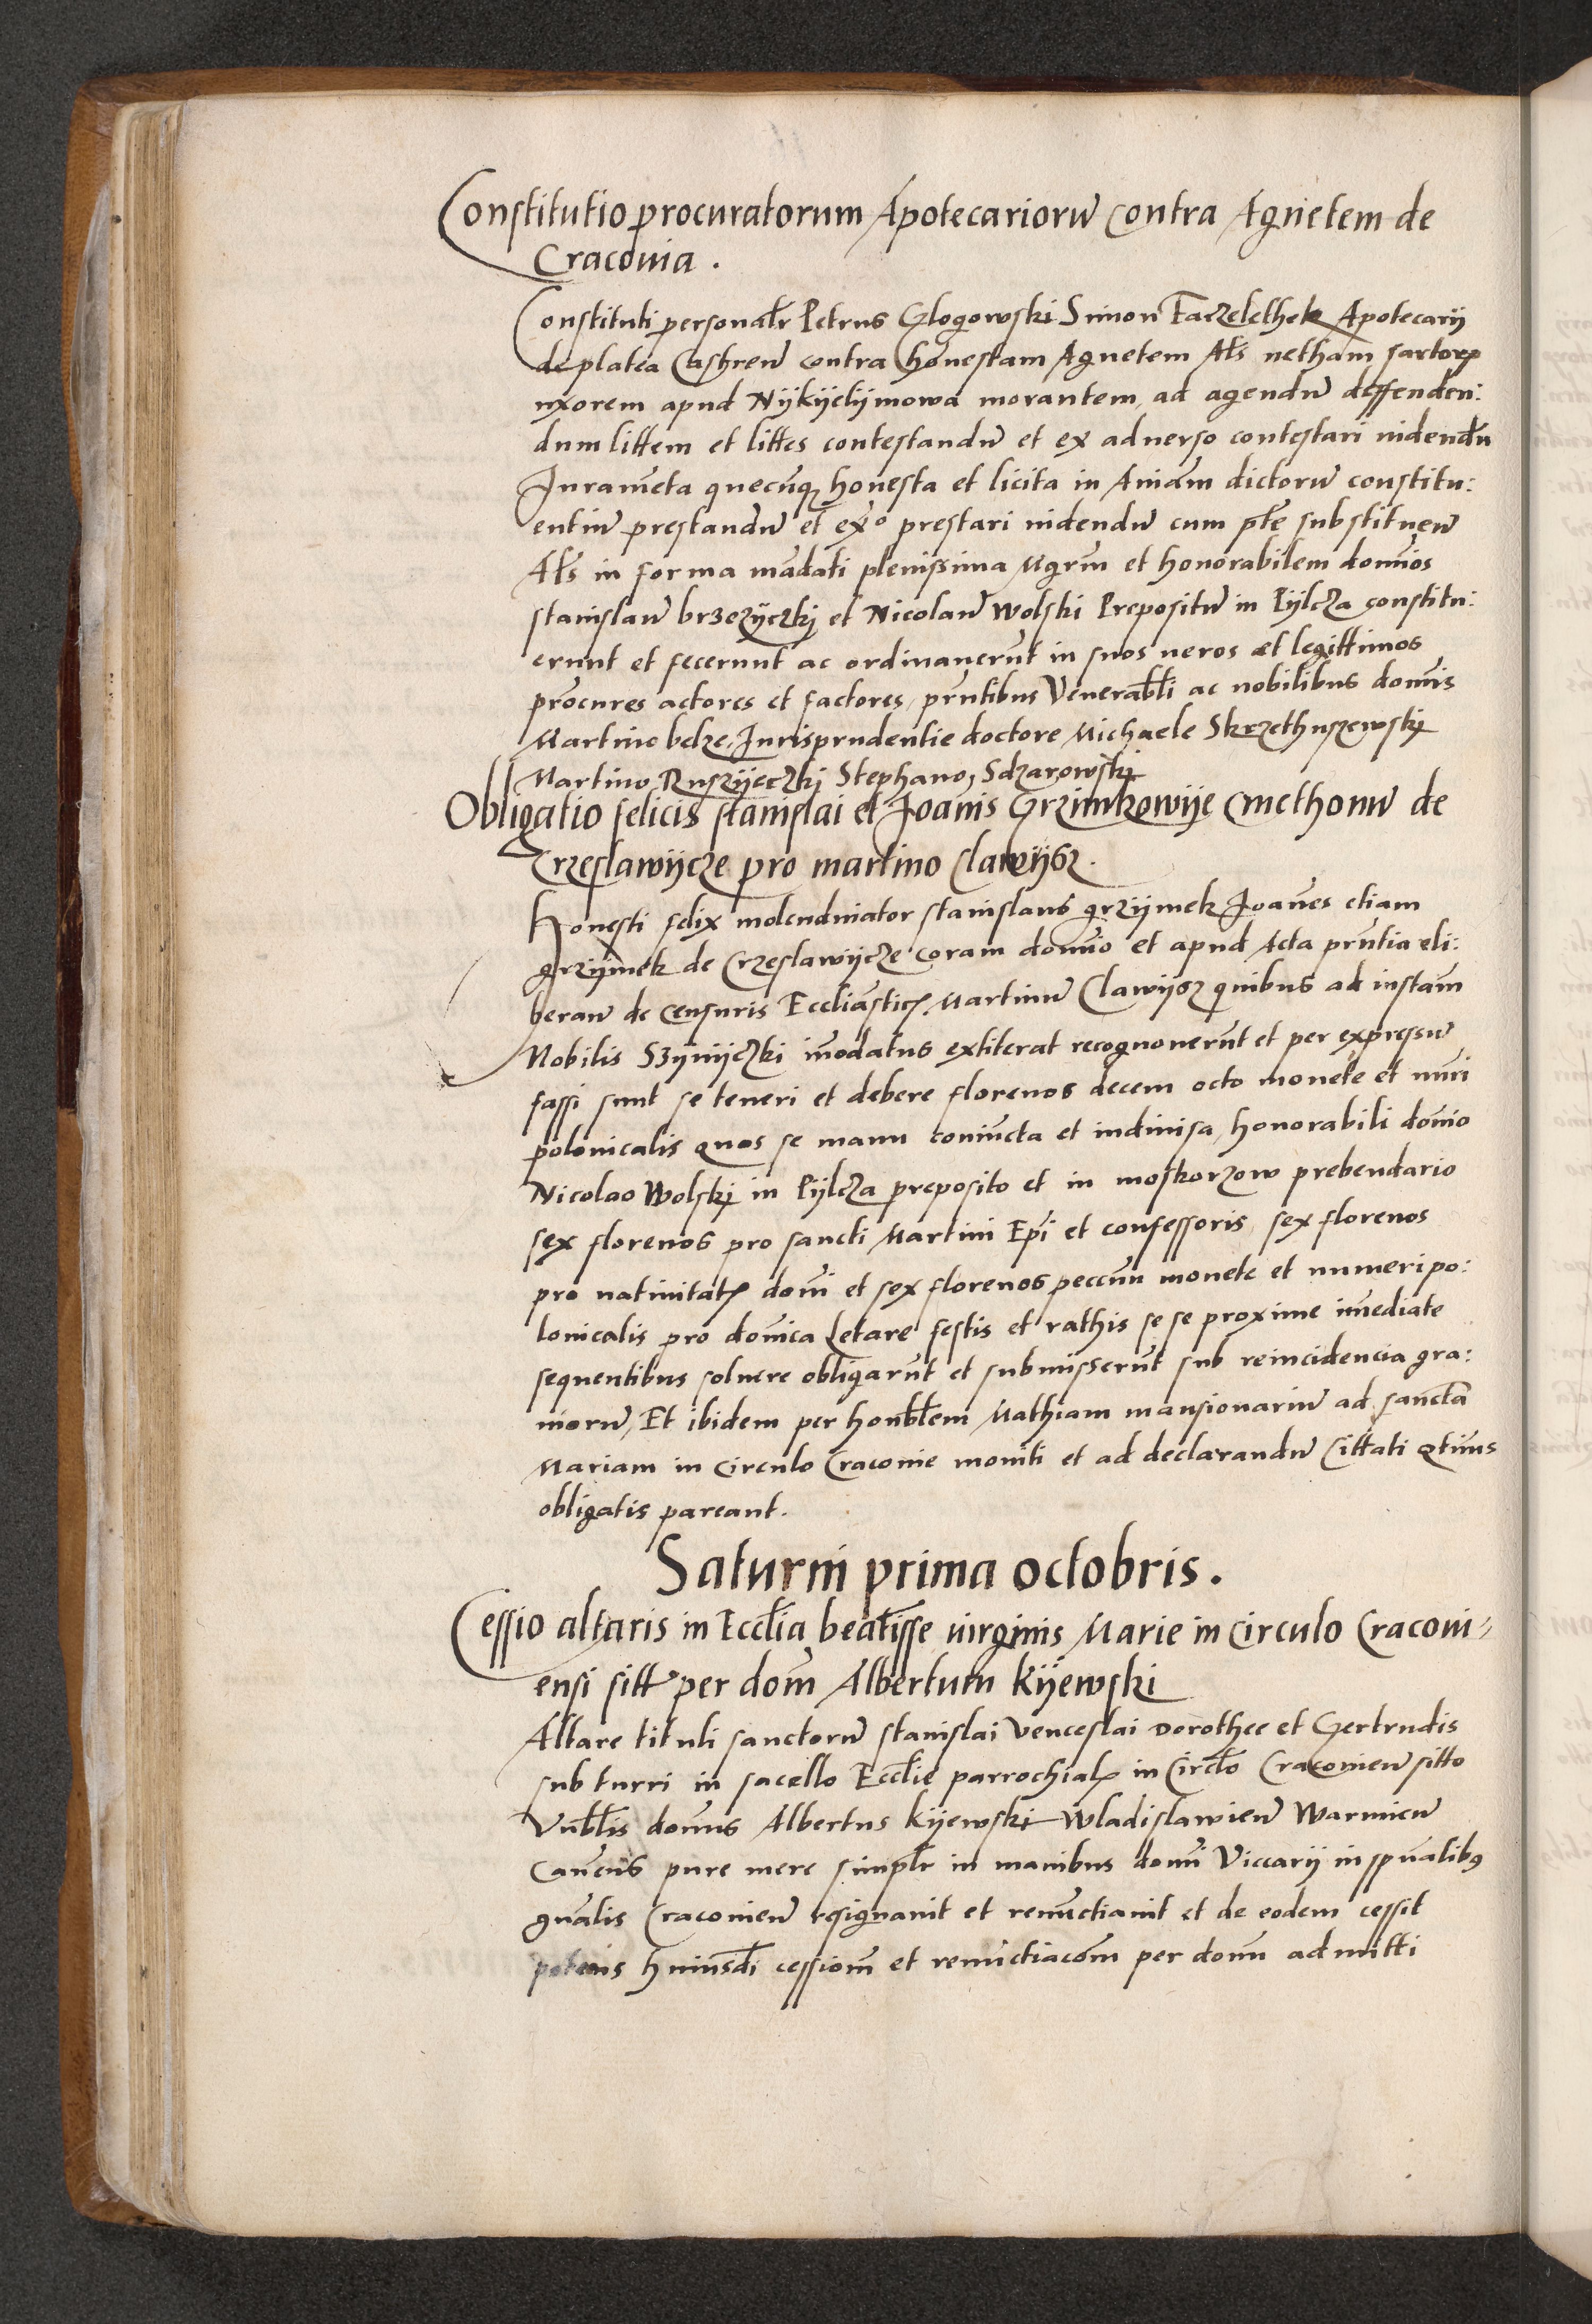 Constitutio procuratorum Apotecariorũ contra Agnetem de
Cracouia .
Constituti personalr Petrus Glogowski Simon Faczelethek Apotecarij
de platea Castren̄ contra honestam Agnetem Als netham sartoris
uxorem apud Nykyelymowa morantem, ad agendũ deffenden:
dum littem et littes contestandũ et ex aduerso contestari uidendũ
Juram̄eta quecũq honesta et licita in Aniām dictorũ constitu:
entiũ prestandũ et exo prestari uidendũ cum ptē substituen̄
Als in forma mādati plenissima Mgrm̄ et honorabilem domīos
stanislaũ brzezyczkj et Nicolaũ Wolski Prepositũ in Pylcza constitu:
erunt et fecerunt ac ordinauerũt in suos ueros et legittimos
procures actores et factores, pn̄tibus Venerabli ac nobilibus domīs
Martino belze, Jurisprudentie doctore Michaele Skrzethuszewskj
Martino Ruszyeczkj Stephano, Sdzarowskj
Obligatio felicis stanislai et Joanīs Grzimkowije Cmethonũ de
Crzeslawijcze pro martino Clawijsz.
Honesti felix molendinator stanislaus grzijmek Joan̄es etiam
grzijmek de Crzeslawijcze coram domīo et apud Acta pn̄tia eli:
beraũ de censuris Eccliāstics Martinũ Clawijsz quibus ad instam̄
Nobilis Szijnijczki in̄odatus extiterat recognouerũt et per expressũ
fassi sunt se teneri et debere florenos decem octo monete et nūri
polonicalis quos se manu coniūcta et indiuisa, honorabili domīo
Nicolao Wolskj in Pijlcza preposito et in moskorzow prebendario
sex florenos pro sancti Martini Epī et confessoris, sex florenos
pro natiuitats domī et sex florenos peccun̄ monete et numeri po:
lonicalis pro domīca Letare festis et rathis se se proxime im̄ediate
sequentibus soluere obligarũt et submisserũt sub reincidencia gra:
uiorũ, Et ibidem per honblem Mathiam mansionariũ ad sanctā
Mariam in circulo Cracouie moniti et ad declarandũ Cittati qtiuus
obligatis pareant.
Saturni prima octobris .
Cessio altaris in Ecclia beatisse uirginis Marie in Circulo Cracoui-
ensi sitt per dom̄ Albertum kijewski
Altare tituli sanctorũ stanislai Venceslai Dorothee et Gertrudis
sub turri in sacello Ecclie parrochials in Circlo Cracouien̄ sitto
Vnblis domūs Albertus kijewski Wladislawien̄ Warmien̄
Can̄eus pure mere simplr in manibus domī Viccarij in spūalibus
gnālis Cracouien̄ resignauit et renūctiauit et de eodem cessit
petens huiusdi cessiom̄ et renūctiacom̄ per dom̄ admitti